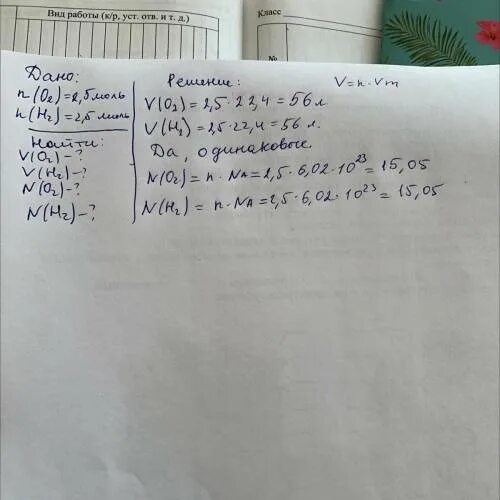 Вид работы (к/р, уст. отв. и т. д.)
Класс
№
Дано:
n(O₂)=2,5 моль
n(H₂)=2,5 моль
Найти:
V(O₂)-?
V(H₂)-?
N(O₂)-?
N(H₂)-?
Решение:
V=n·Vm
V(O₂)=2,5·22,4=56 л
V(H₂)=2,5·22,4=56 л.
Да, одинаковые
N(O₂)=n·NA=2,5·6,02·10²³=15,05
N(H₂)=n·NA=2,5·6,02·10²³=15,05